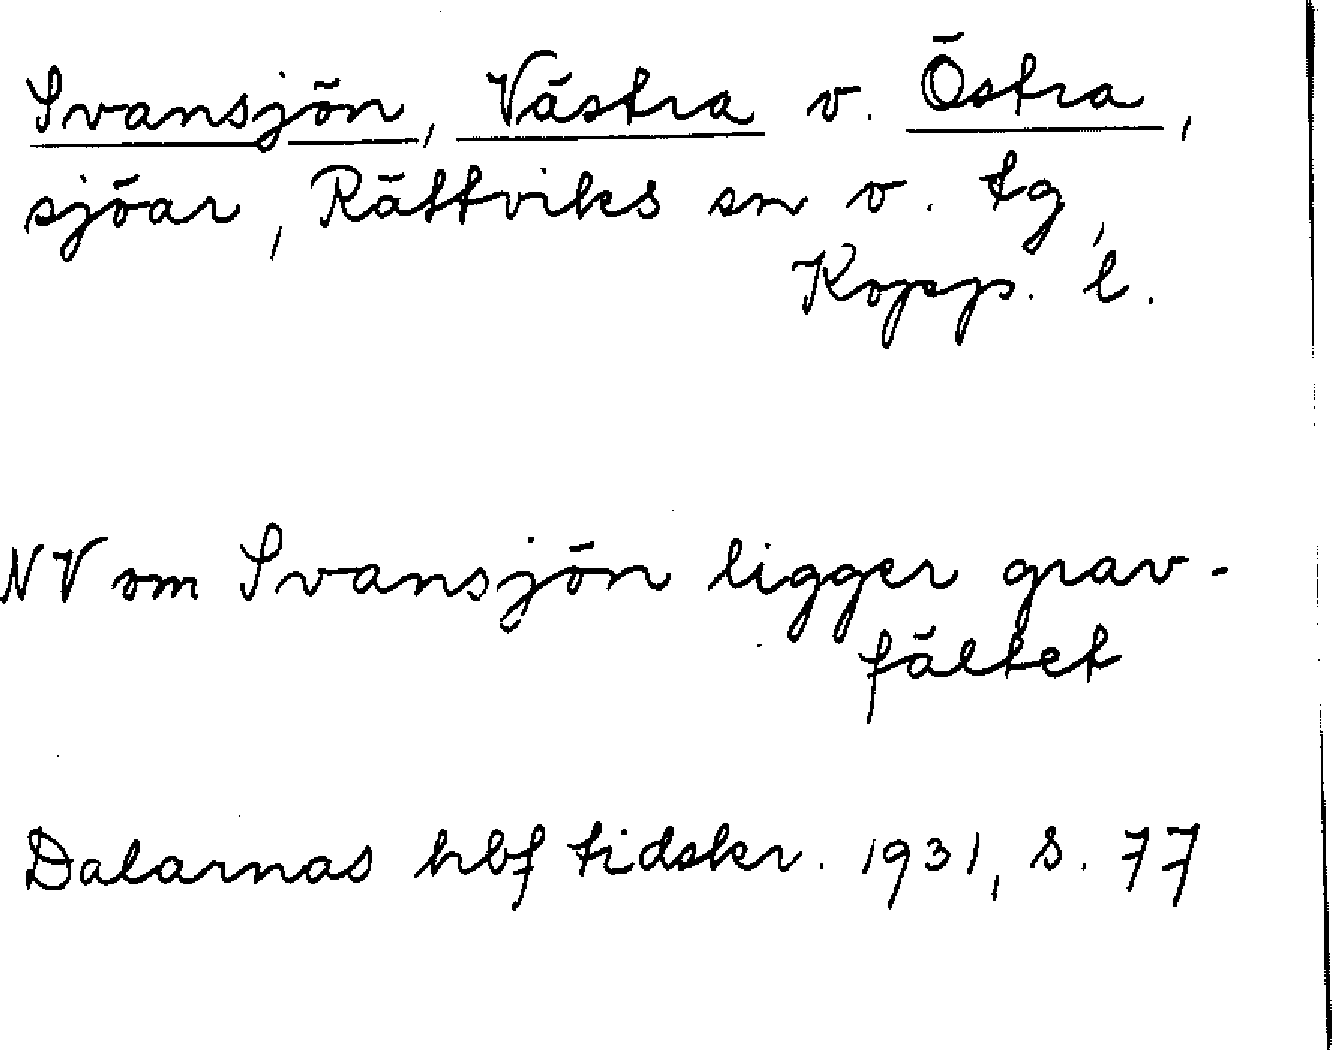 Svansjön, Västra o. Östra,
sjöar, Rättviks sn o. tg,
Kopp. l.
NV om Svansjön ligger grav-
fältet
Dalarnas hbf tidskr. 1931, s. 77